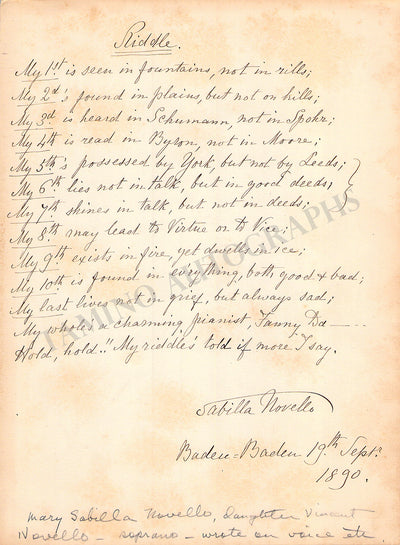 Riddle.
My 1st is seen in fountains, not in rills;
My 2d's found in plains, but not on hills;
My 3d is heard in Schumann, not in Spohr;
My 4th is read in Byron, not in Moore;
My 5th's possessed by York, but not by Leeds;
My 6th lies not in talk, but in good deeds;
My 7th shines in talk, but not in deeds;
My 8th may lead to Virtue or to Vice;
My 9th exists in fire, yet dwells in ice;
My 10th is found in everything, both good & bad;
My last lives not in grief, but always sad;
My whole's a charming pianist, Fanny Da----
Hold, hold!! My riddle's told if more I say.
Sabilla Novello
Baden-Baden 19th Septr
1890.
Mary Sabilla Novello, daughter Vincent
Novello - soprano - wrote on voice etc.
TAMINO AUTOGRAPHS